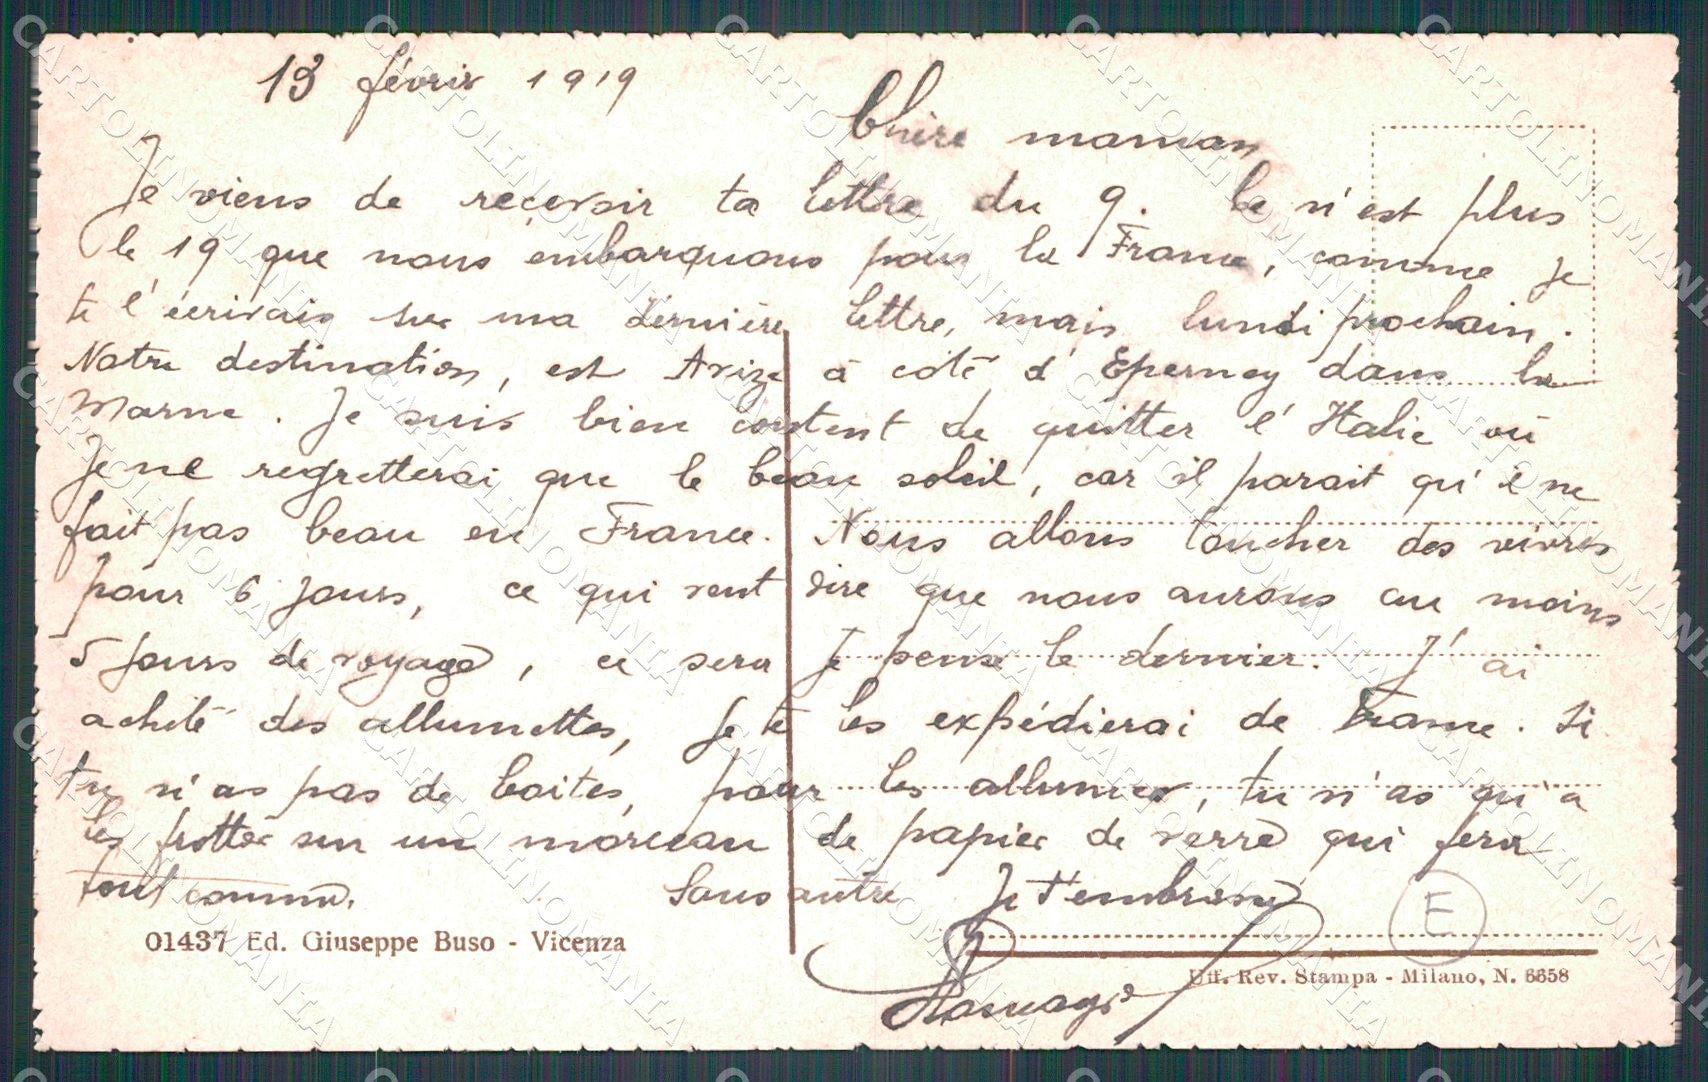 13 févrir 1919
Chère maman
Je viens de recevoir ta lettre du 9. Ce n'est plus
le 19 que nous embarquons pour la France, comme je
te l'écrivais sur ma dernière lettre, mais lundi prochain.
Notre destination, est Avize à coté d'Epernay dans la
Marne. Je suis bien content de quitter l'Italie où
Je ne regretterai que le beau soleil, car il parait qu'il ne
fait pas beau en France. Nous allons toucher des vivres
pour 6 jours, ce qui veut dire que nous aurons au moins
5 jours de voyage, ce sera je pense le dernier. J'ai
acheté des allumettes, je te les expédierai de France. Si
tu n'as pas de boites, pour les allumer, tu n'as qu'a
les frotter sur un morceau de papier de verre qui fera
tout comme. Sans autre Je t'embrasse
E
01437 Ed. Giuseppe Buso - Vicenza
Uff. Rev. Stampa - Milano, N. 6658
CARTOLINOMANIA